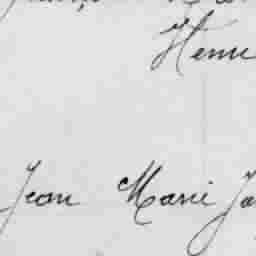 Henri
Jean Marie Ja